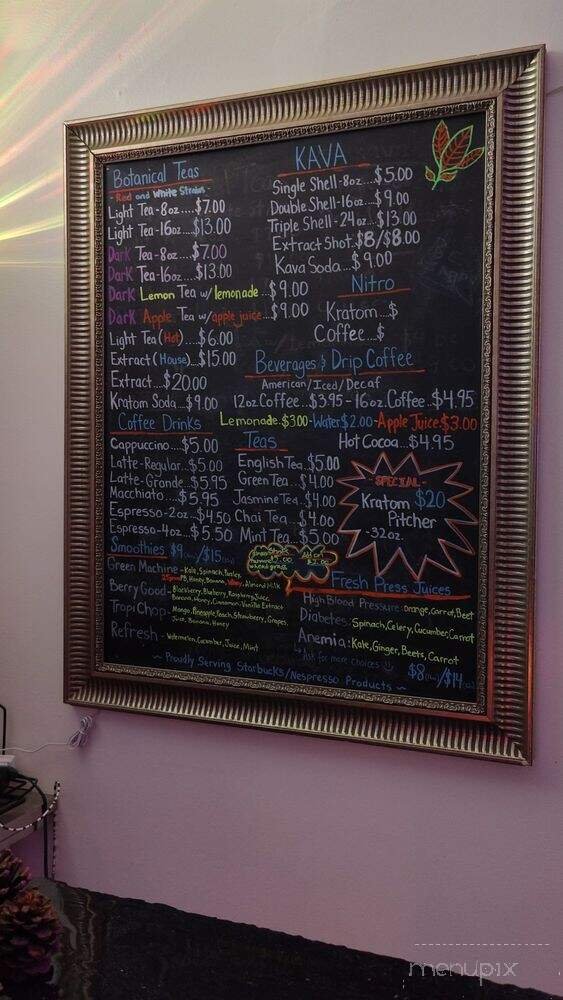 Botanical Teas
- Red and White Strains -
Light Tea - 8oz....$7.00
Light Tea - 16oz....$13.00
Dark Tea - 8oz....$7.00
Dark Tea - 16oz....$13.00
Dark Lemon Tea w/ lemonade...$9.00
Dark Apple Tea w/ apple juice...$9.00
Light Tea (Hot)...$6.00
Extract (House)...$15.00
Extract...$20.00
Kratom Soda...$9.00
KAVA
Single Shell - 8oz...$5.00
Double Shell - 16oz...$9.00
Triple Shell - 24oz...$13.00
Extract Shot.$8/$8.00
Kava Soda...$9.00
Nitro
Kratom...$
Coffee...$
Beverages & Drip Coffee
American/Iced/Decaf
12oz Coffee...$3.95 - 16oz. Coffee...$4.95
Lemonade.$3.00 - Water $2.00 - Apple Juice.$3.00
Hot Cocoa...$4.95
Coffee Drinks
Cappuccino...$5.00
Latte-Regular..$5.00
Latte-Grande..$5.95
Macchiato...$5.95
Espresso-2oz..$4.50
Espresso-4oz...$5.50
Teas
English Tea..$5.00
Green Tea...$4.00
Jasmine Tea..$4.00
Chai Tea...$4.00
Mint Tea...$5.00
- SPECIAL -
Kratom $20
Pitcher
- 32oz.
Smoothies $9/$15
Green Machine - Kale, Spinach, Parsley,
PB, Honey, Banana, Almond Milk
Berry Good - Blackberry, Blueberry, Raspberry, Juice,
Banana, Honey, Cinnamon, Vanilla Extract
Tropi Chop - Mango, Pineapple, Peach, Strawberry, Grapes,
Juice, Banana, Honey
Refresh - Watermelon, Cucumber, Juice, Mint
Add on
$2.00
wheat grass
Fresh Press Juices
High Blood Pressure: Orange, Carrot, Beet
Diabetes: Spinach, Celery, Cucumber, Carrot
Anemia: Kale, Ginger, Beets, Carrot
Ask for more choices
$8/$14
~ Proudly Serving Starbucks/Nespresso Products ~
menupix